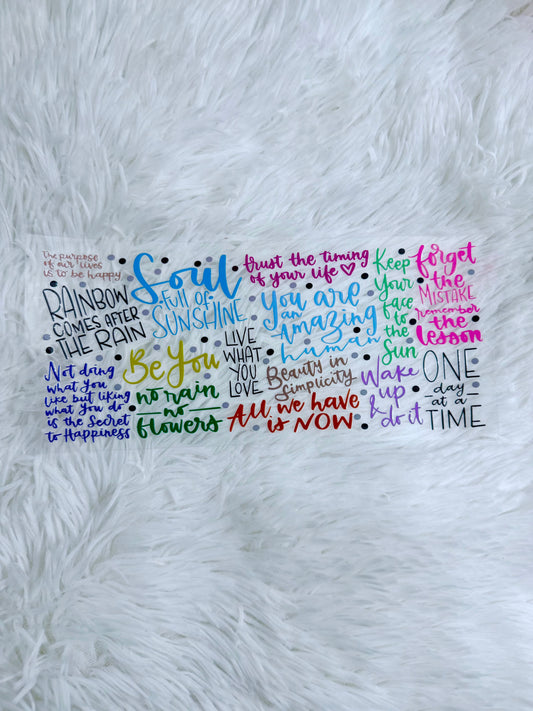 The purpose
of our lives
is to be happy
RAINBOW
COMES AFTER
THE RAIN
Not doing
what you
like but liking
what you do
is the Secret
to Happiness
Soul
full of
SUNSHINE
Be You
no rain
no
flowers
LIVE
WHAT
YOU
LOVE
trust the timing
of your life
You are
an
amazing
human
Beauty in
simplicity
All we have
is NOW
Keep
Your
face
to
the
Sun
Wake
up
& do it
forget
the
MISTAKE
remember
the
lesson
ONE
day
at a
TIME